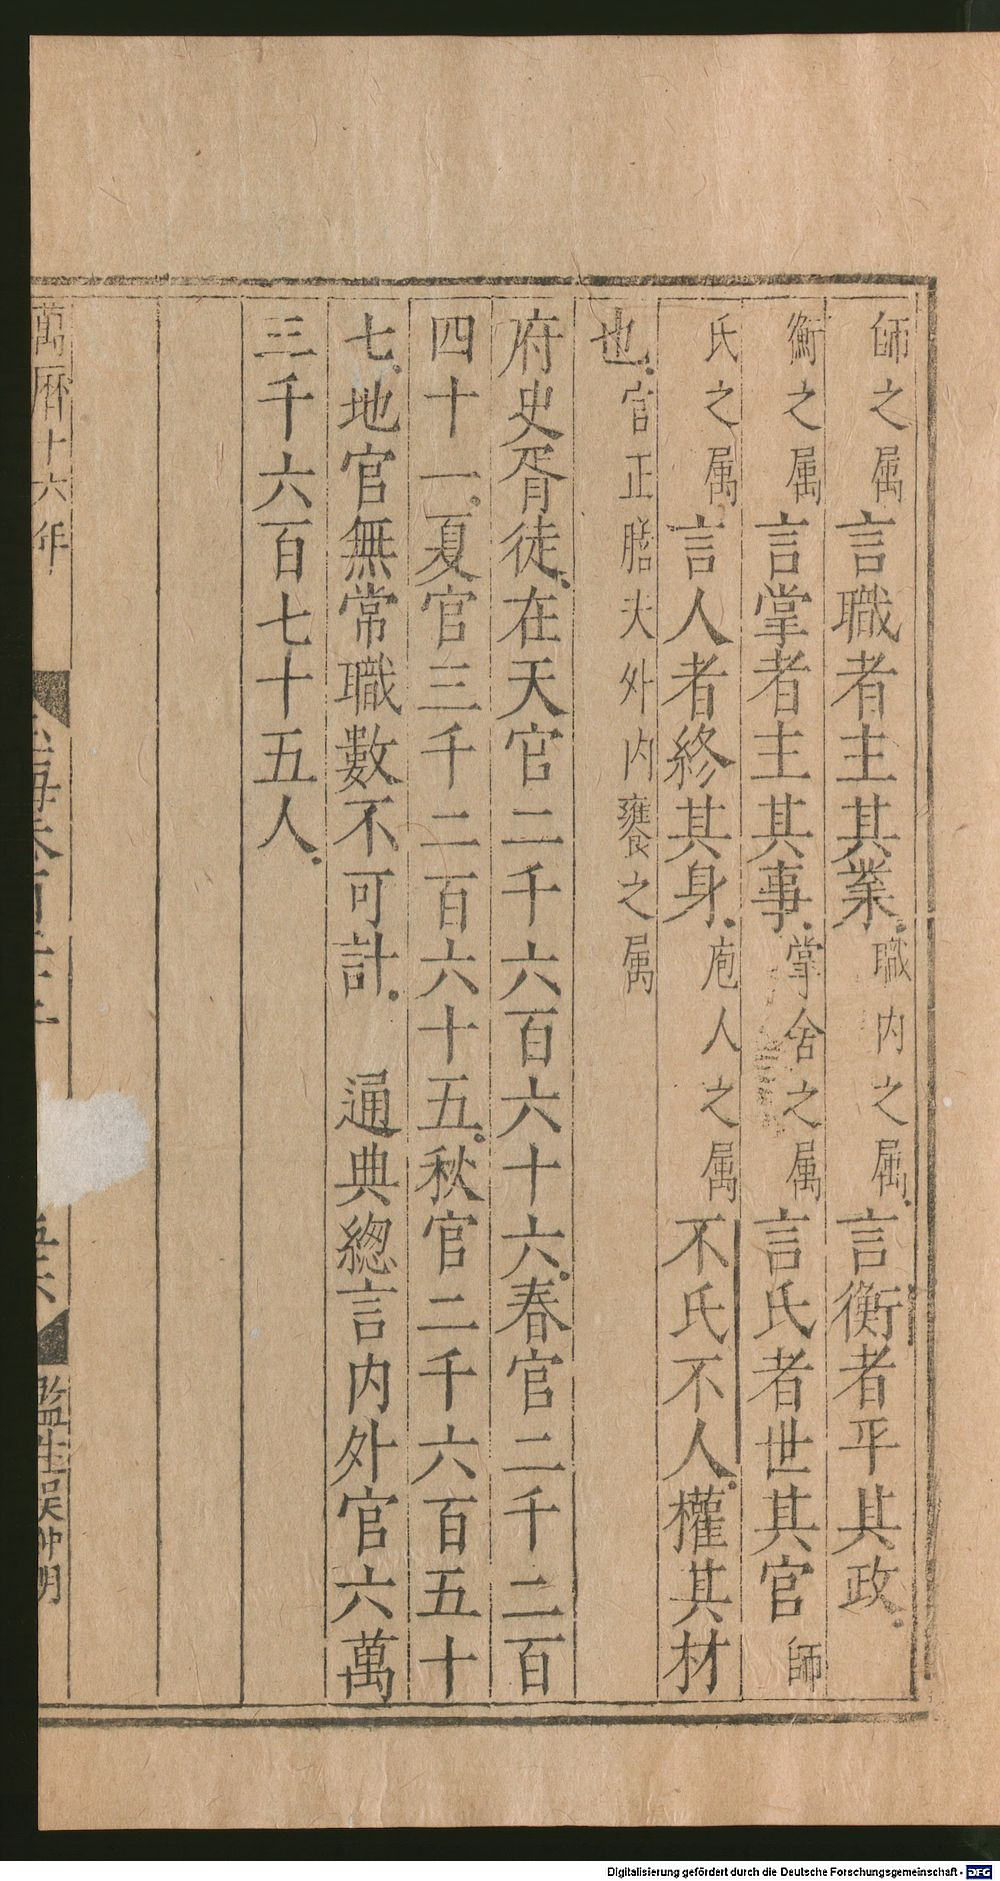 師之属言職者主其業職内之属言衡者平其政
衡之属言掌者主其事掌舍之属言氏者世其官師
氏之属言人者終其身庖人之属不氏不人權其材
也官正膳夫外内饔之属
府史胥徒在天官二千六百六十六春官二千二百
四十一夏官三千二百六十五秋官二千六百五十
七地官無常職數不可計　通典總言内外官六萬
三千六百七十五人
萬曆十六年
監生吴仲明
Digitalisierung gefördert durch die Deutsche Forschungsgemeinschaft - DFG